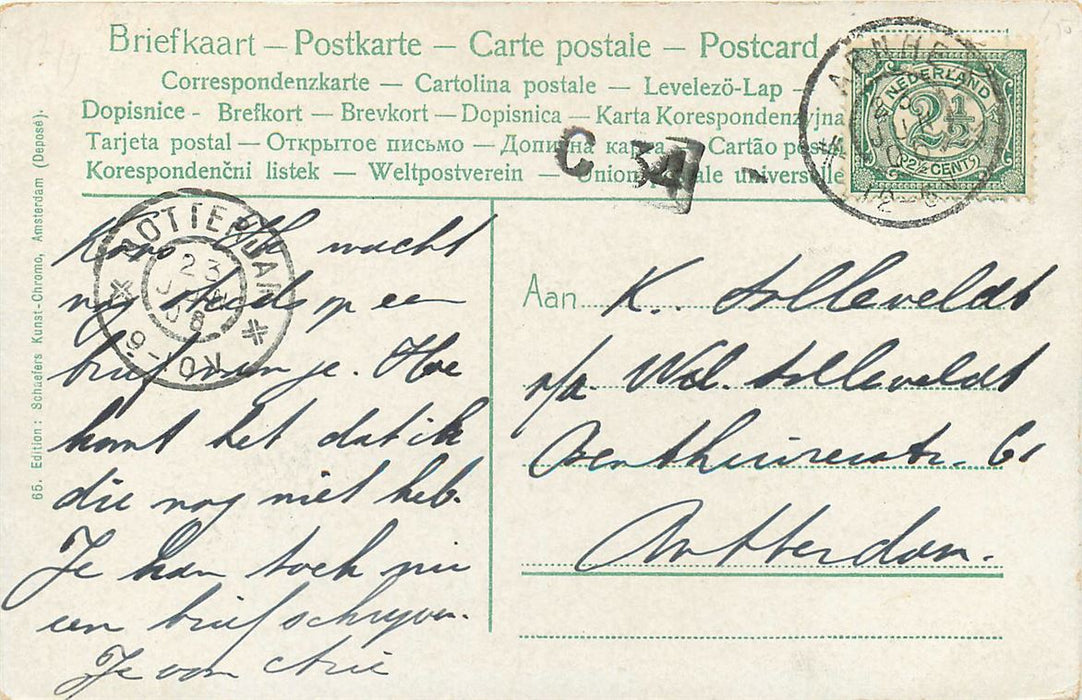 Briefkaart — Postkarte — Carte postale — Postcard
Correspondenzkarte — Cartolina postale — Levelezö-Lap —
Dopisnice - Brefkort — Brevkort — Dopisnica — Karta Korespondenzyjna
Tarjeta postal — Открытое письмо — Дописна карта — Cartão postal
Korespondenčni listek — Weltpostverein — Union postale universelle
ARNHEM
NEDERLAND
2½
(2½ CENTS)
C 34
ROTTERDAM
23
JAN
08
6-9
65. Edition: Schaefers Kunst-Chromo, Amsterdam (Deposé).
wacht
nog steeds op een
brief van je. Hoe
komt het dat ik
die nog niet heb.
Je kan toch nu
een brief schrijven.
Je van Arie
Aan K. Solleveldt
p/a. Wd. Solleveldt
Benthuizerstr. 61
Rotterdam.